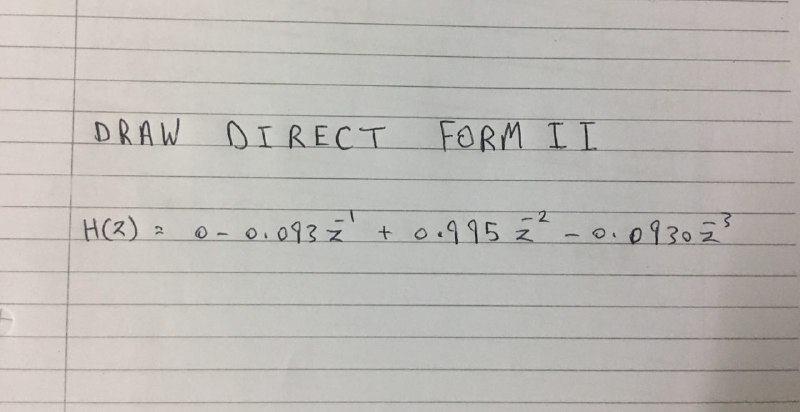 DRAW DIRECT FORM II
H(z) = 0 - 0.093 z⁻¹ + 0.995 z⁻² - 0.0930 z⁻³